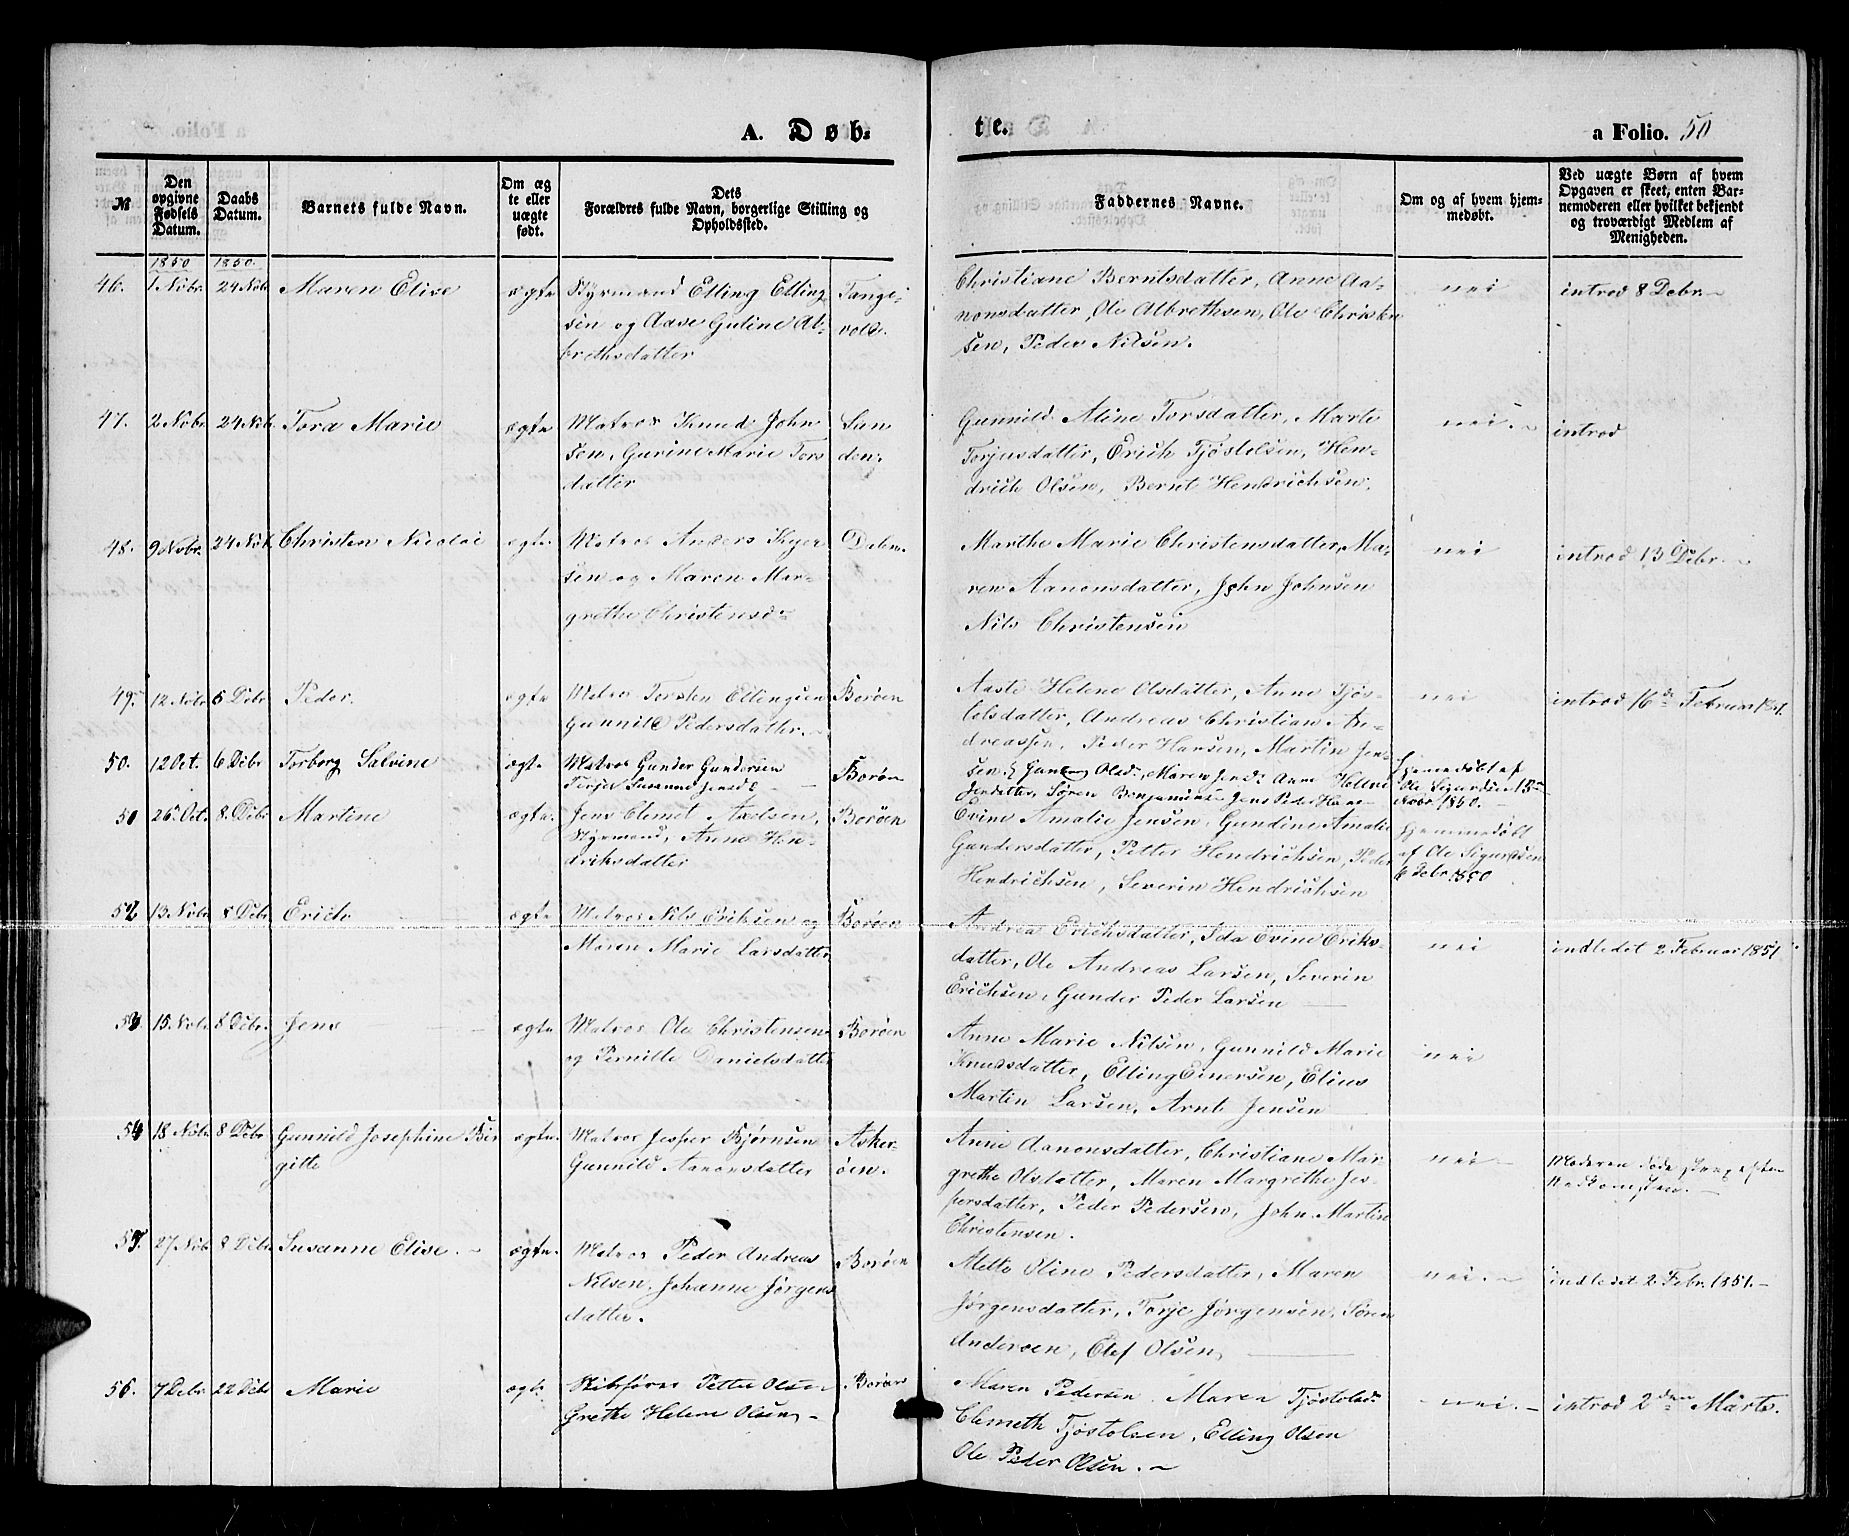 A. Døb-
te.
a Folio. 50
№
Den opgivne Fødsels Datum.
Daabs Datum.
Barnets fulde Navn.
Om ægte eller uægte født.
Dets Forældres fulde Navn, borgerlige Stilling og Opholdssted.
Faddernes Navne.
Om og af hvem hjemmedøbt.
Ved uægte Børn af hvem Opgaven er skeet, enten Barnemoderen eller hvilket bekjendt og troværdigt Medlem af Menigheden.
1850 1850.
46. 1 Nobr. 24 Nobr Maren Elise ægte Styrmand Elling Elling Tangi-
sen og Aase Guline Al- vold.
brethsdatter
Christiane Berntsdatter, Anne Aa- nei introd 8 Debr.
nonsdatter, Ole Albrethsen, Ole Christen
sen, Peder Nilsen.
47. 2 Nobr 24 Nob. Tora Marie ægte Matros Knud John San
sen, Gurine Marie Tors den.
datter
Gunnild Aline Torsdatter, Marte nei. introd
Torjusdatter, Erich Tjøstelsen, Hen-
drich Olsen, Bernt Hendrichsen.
48. 9 Nobr. 24 Nob. Christen Nicolai ægte. Matros Anders Kjer
sen og Maren Mar-
grethe Christensd
Marthe Marie Christensdatter, Ma- nei introd 13 Debr.
ren Aanonsdatter, John Johnsen
Nils Christensen
49. 12 Nobr 6 Debr Peder. ægte Matros Torsten Ellingsen Borøen
Gunnild Pedersdatter.
Aaste Helene Olsdatter, Anne Tjøs- nei introd 16de Februar 1851.
tolsdatter, Andreas Christian An-
dreassen, Peder Hansen, Martin Jen-
sen.
50. 12 Oct. 6 Debr Torborg Salvine ægte Matros Gunder Gundersen Borøn
Terjes Susanne Jensd
Olsd., Maren Jensd. Anne Helene Hjemmedøbt af
Søren Benjaminsen Jens Peder Hans Ole Sigurdsen 18
Nobr 1850.
51 26 Oct. 8. Debr Martine ægte. Jens Clemet Axelsen, Borøen
Styrmand, Anne Hen-
driksdatter
Evine Amalie Jensen, Gundine Amalie Hjemmedøbt
Gundersdatter, Petter Hendrichsen, Peder af Ole Sigurdsen
Hendrichsen, Severin Hendrichsen 6 Debr 1850
52 13. Nobr 8 Debr. Erich ægte Matros Nils Eriksen og Borøen
Maren Marie Larsdatter
Andrea Erichsdatter, Ida Evine Eriks- nei indledet 2 Februar 1851
datter, Ole Andreas Larsen, Severin
Erichsen, Gunder Peder Larsen
53. 15. Nob. 8 Debr. Jens ægte Matros Ole Christensen Borøen
og Pernille Danielsdatter
Anne Marie Nilsen, Gunnild Marie nei
Knudsdatter, Elling Einersen, Elius
Martin Larsen, Arnt Jensen
54 18 Nobr 8 Debr Gunnild Josephine Bir ægte. Matros Jesper Bjørnsen Asker-
gitte Gunnild Aanonsdatter øen.
Anne Aanonsdatter, Christiane Mar- nei Moderen døde strax efter
grethe Olsdatter, Maren Margrethe Jes- Nedkomsten.
persdatter, Peder Pedersen, John Martin
Christensen.
55. 27 Nobr 8 Debr Susanne Elise. ægte. Matros Peder Andreas Borøen
Nilsen, Johanne Jørgens
datter.
Mette Oline Pedersdatter, Maren nei. indledet 2 Febr. 1851.
Jørgensdatter, Torje Jørgensen, Søren
Andersen, Olef Olsen
56. 7 Debr 22 Debr Marie ægte Skibsfører Petter Olsen Borøen
Grethe Helene Olsen
Maren Pedersen. Maren Tjøstolsd. nei. introd 2den Marts.
Clemeth Tjøstolsen, Elling Olsen
Ole Peder Olsen.